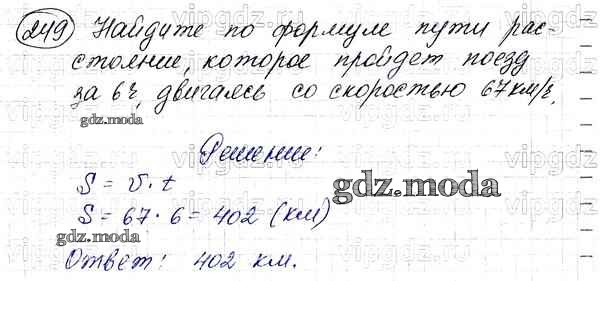 249 Найдите по формуле пути рас-
стояние, которое пройдет поезд
за 6ч, двигаясь со скоростью 67км/ч.
gdz.moda
Решение:
S = v · t
gdz.moda
S = 67 · 6 = 402 (км)
gdz.moda
Ответ: 402 км.